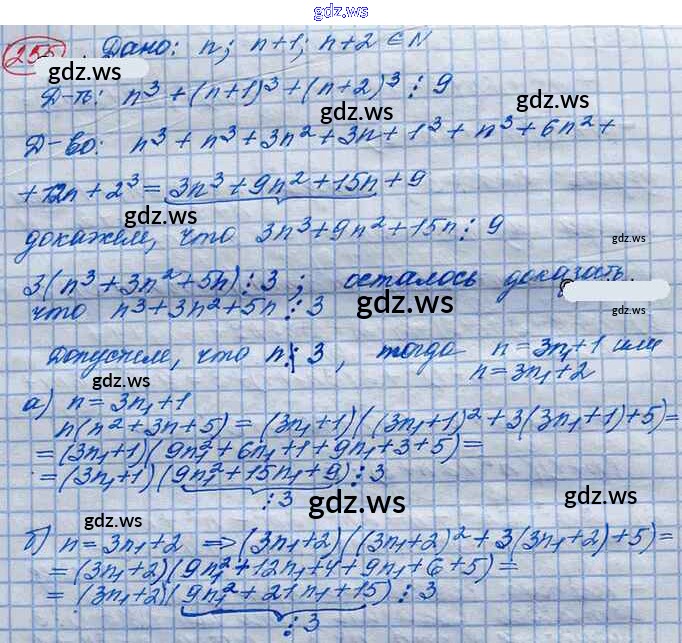 gdz.ws
255. Дано: n; n+1; n+2 ∈ N
gdz.ws
Д-ть: n³ + (n+1)³ + (n+2)³ ⋮ 9
gdz.ws gdz.ws
Д-во: n³ + n³ + 3n² + 3n + 1³ + n³ + 6n² +
+ 12n + 2³ = 3n³ + 9n² + 15n + 9
gdz.ws
докажем, что 3n³ + 9n² + 15n ⋮ 9
gdz.ws
3(n³ + 3n² + 5n) ⋮ 3 ; осталось доказать,
что n³ + 3n² + 5n ⋮ 3
gdz.ws gdz.ws
Допустим, что n ⋮̸ 3, тогда n = 3n₁ + 1 или
n = 3n₁ + 2
gdz.ws
а) n = 3n₁ + 1
n(n² + 3n + 5) = (3n₁+1)((3n₁+1)² + 3(3n₁+1) + 5) =
= (3n₁+1)(9n₁² + 6n₁ + 1 + 9n₁ + 3 + 5) =
= (3n₁+1)(9n₁² + 15n₁ + 9) ⋮ 3
⋮ 3
gdz.ws gdz.ws
gdz.ws
б) n = 3n₁ + 2 ⇒ (3n₁+2)((3n₁+2)² + 3(3n₁+2) + 5) =
= (3n₁+2)(9n₁² + 12n₁ + 4 + 9n₁ + 6 + 5) =
= (3n₁+2)(9n₁² + 21n₁ + 15) ⋮ 3
⋮ 3
gdz.ws